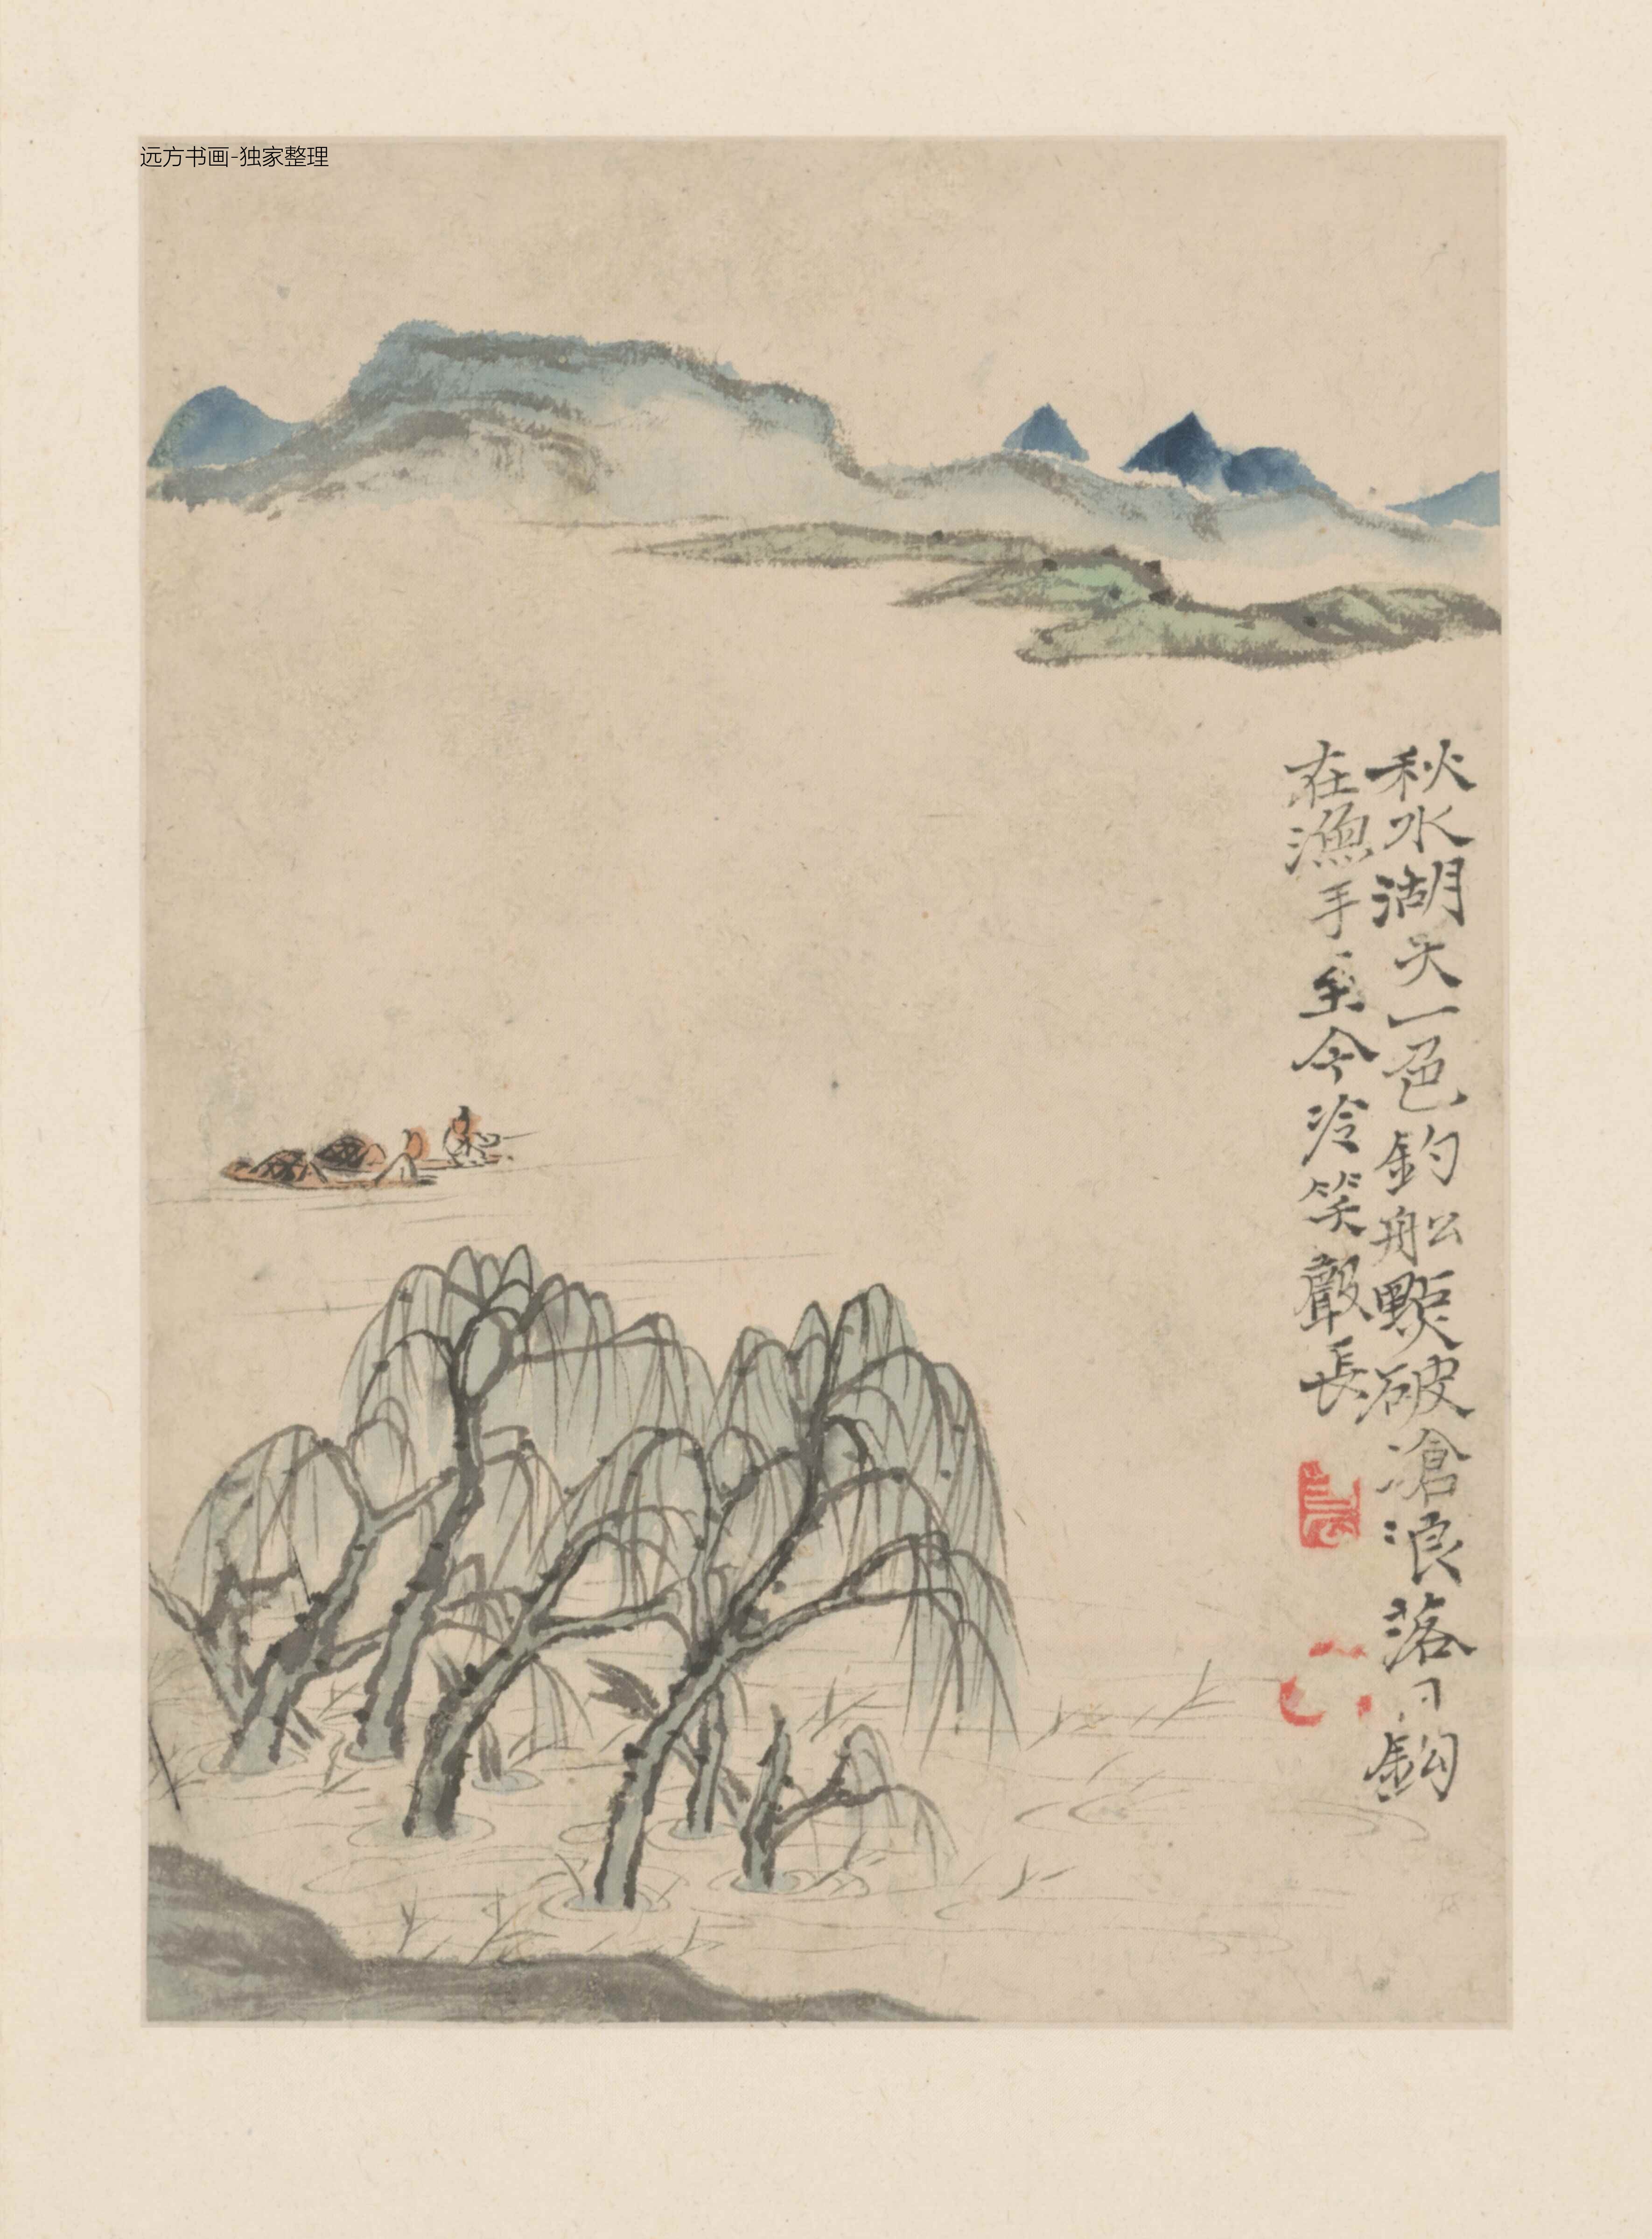 远方书画-独家整理
秋水湖天一色釣船點破滄浪落日鈎
在漁手至今冷笑聲長